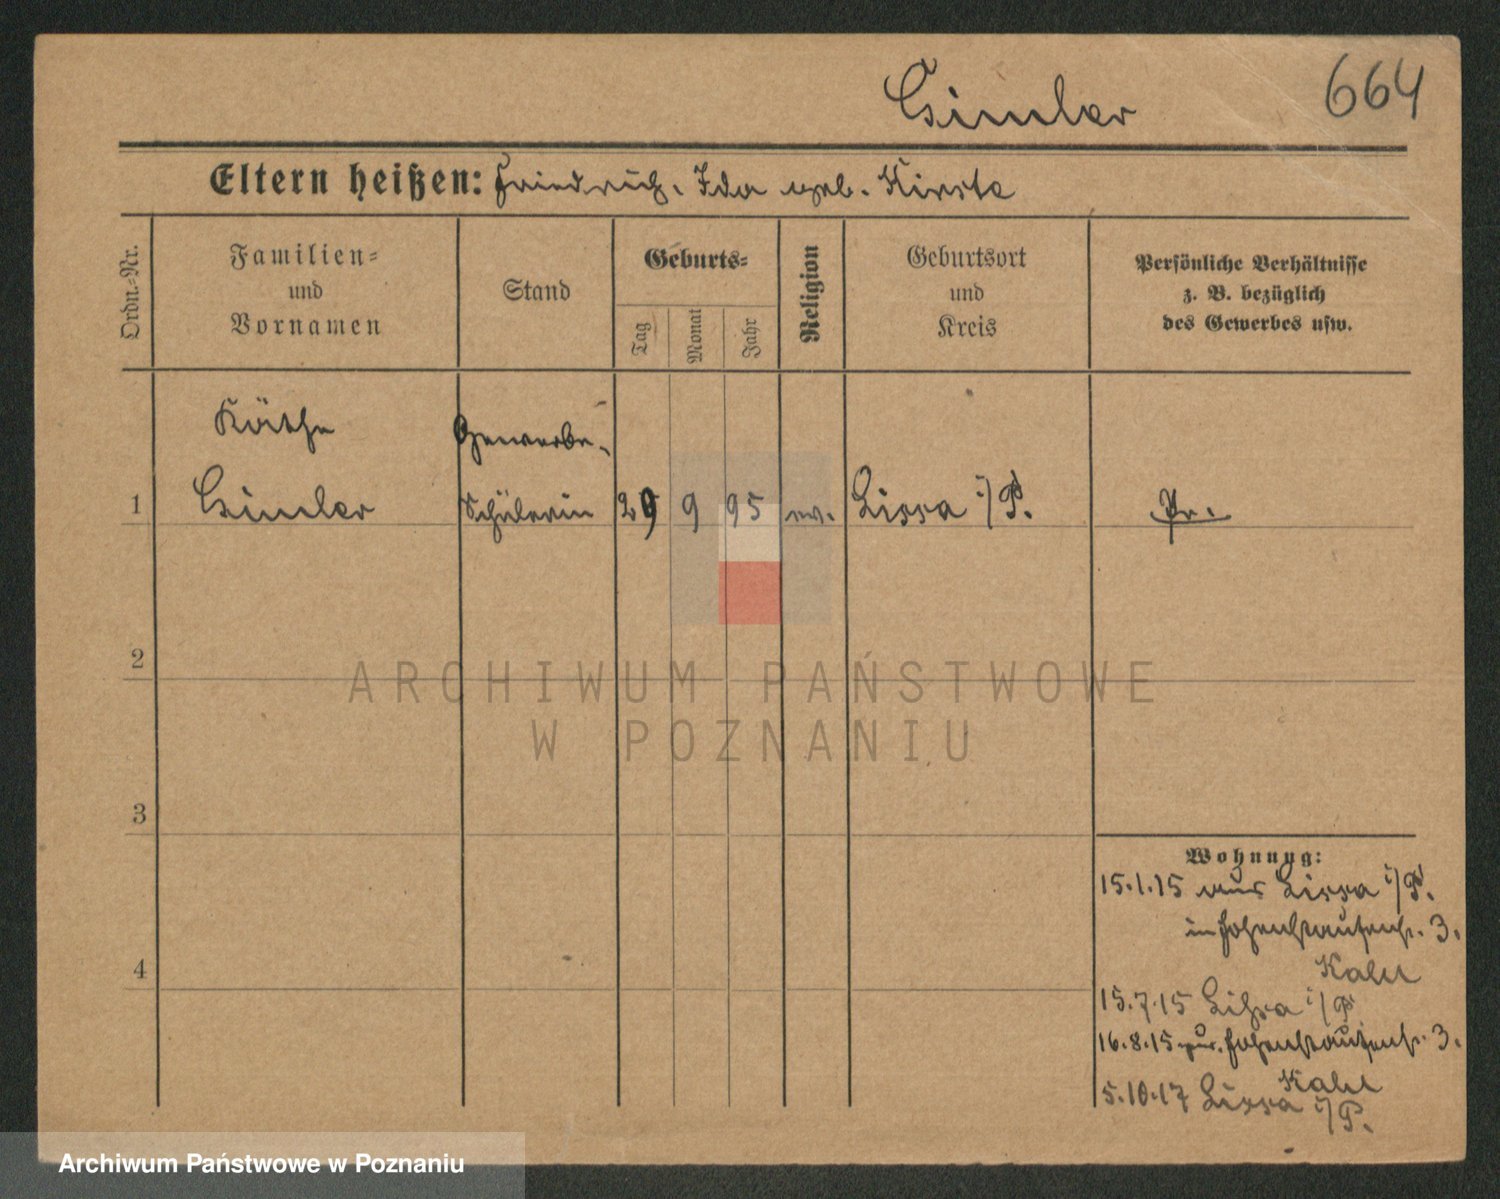 664
Eltern heißen: Friedrich. Ida geb. Kirste
Ordn.-Nr.
Familien-
und
Vornamen
Stand
Geburts-
Tag
Monat
Jahr
Religion
Geburtsort
und
Kreis
Persönliche Verhältnisse
z. B. bezüglich
des Gewerbes usw.
Käthe
Gewerbe-
1
Schülerin
29
9
95
ev.
Lissa i/P.
Pr.
2
3
4
ARCHIWUM PAŃSTWOWE
W POZNANIU
Wohnung:
15.1.15 aus Lissa i/P.
in Hohenstaufenstr. 3.
15.7.15 Lissa i/P.
16.8.15 zur. Hohenstaufenstr. 3.
5.10.17 Lissa i/P.
Archiwum Państwowe w Poznaniu